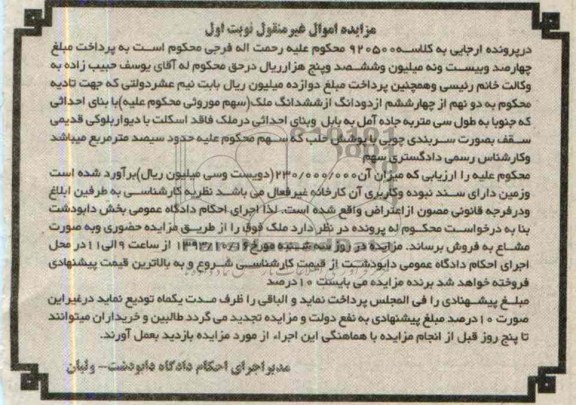 مزایده اموال غیر منقول نوبت اول
درپرونده ارجایی به کلاسه ۹۲۰۵۰۰ محکوم علیه رحمت اله فرجی محکوم است به پرداخت مبلغ
چهارصد وبیست ونه میلیون وششصد وپنج هزارریال درحق محکوم له آقای یوسف حبیب زاده به
وکالت خانم رئیسی وهمچنین پرداخت مبلغ دوازده میلیون ریال بابت نیم عشردولتی که جهت تادیه
محکوم به دو نهم از چهارششم ازدودانگ ازششدانگ ملک(سهم موروثی محکوم علیه)با بنای احداثی
که جنوبا به طول سی متربه جاده آمل به بابل وبنای احداثی درملک فاقد اسکلت با دیواربلوکی قدیمی
سقف بصورت سربندی چوبی با پوشش حلب که سهم محکوم علیه حدود سیصد مترمربع میباشد
وکارشناس رسمی دادگستری سهم
محکوم علیه را ارزیابی که میزان آن۲۳۰/۰۰۰/۰۰۰(دویست وسی میلیون ریال)برآورد شده است
وزمین دارای سند نبوده وکاربری آن کارخانه غیرفعال می باشد نظریه کارشناسی به طرفین ابلاغ
ودرفرجه قانونی مصون ازاعتراض واقع شده است. لذا اجرای احکام دادگاه عمومی بخش دابودشت
بنا به درخواست محکوم له پرونده در نظر دارد ملک فوق را از طریق مزایده حضوری وبه صورت
مشاع به فروش برساند. مزایده در روز سه شنبه مورخ ۱۳۹۳/۱۰/۱۶ از ساعت ۹الی۱۱در محل
اجرای احکام دادگاه عمومی دابودشت از قیمت کارشناسی شروع و به بالاترین قیمت پیشنهادی
فروخته خواهد شد برنده مزایده می بایست ۱۰درصد
مبلغ پیشهنادی را فی المجلس پرداخت نماید و الباقی را ظرف مدت یکماه تودیع نماید درغیراین
صورت ۱۰درصد مبلغ پیشنهادی به نفع دولت و مزایده تجدید می گردد طالبین و خریداران میتوانند
تا پنج روز قبل از انجام مزایده با هماهنگی این اجراء از مورد مزایده بازدید بعمل آورند.
مدیراجرای احکام دادگاه دابودشت- ولیان